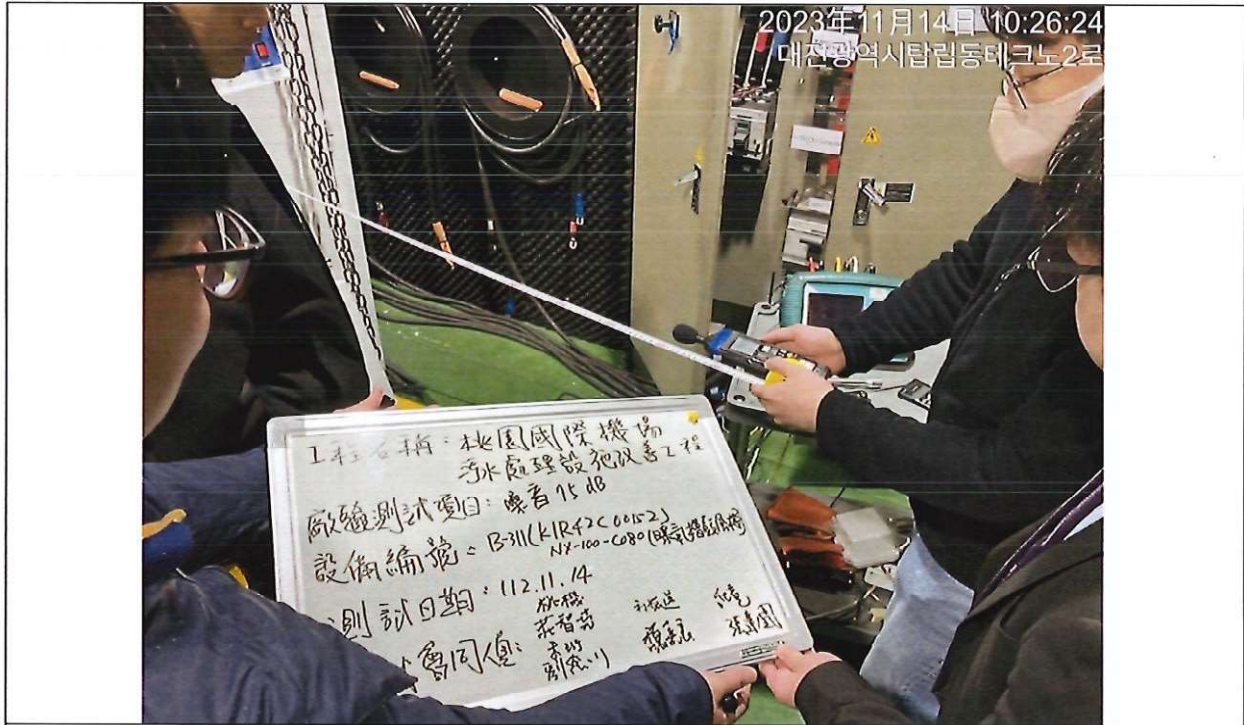 2023年11月14日 10:26:24
대전광역시탑립동테크노2로
工程名稱：桃園國際機場
污水處理設施改善工程
廠驗測試項目：噪音75dB
設備編號：B-311(K1R42C00152)
NX-100-C080(曝氣機鼓風機)
測試日期：112.11.14
會同人員：